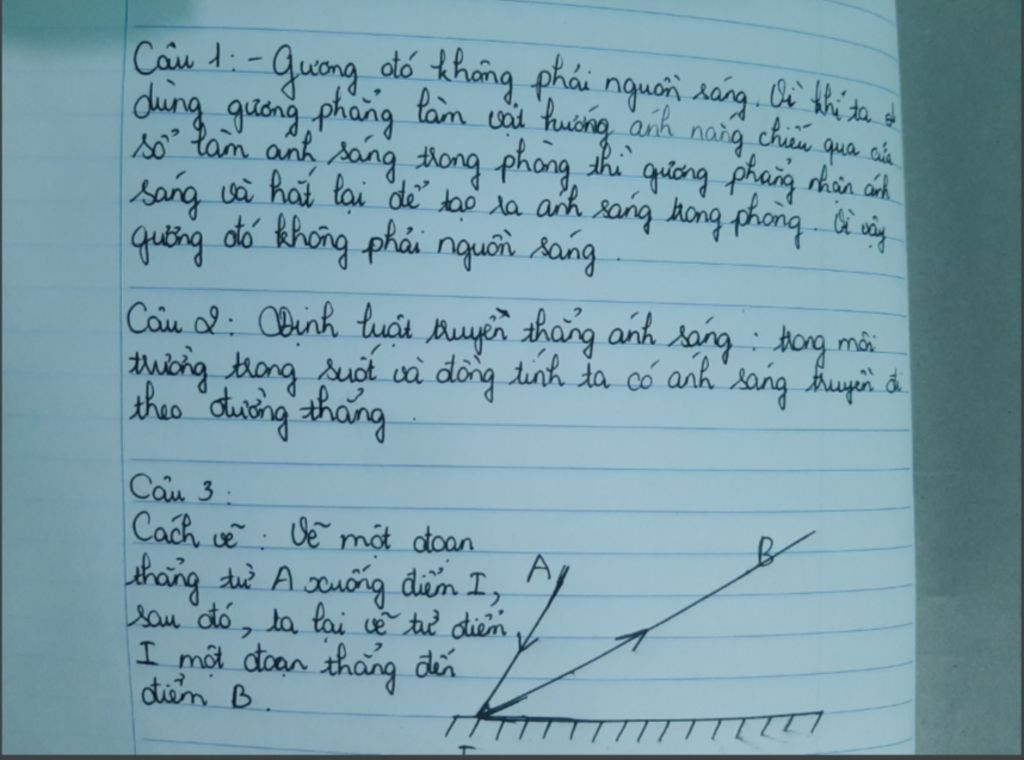 Câu 1: - Gương đó không phải nguồn sáng. Vì khi ta
dùng gương phẳng làm vật hướng ánh nắng chiếu qua cửa
sổ làm anh sáng trong phòng thì gương phẳng nhận ánh
sáng và hắt lại để tạo ra ánh sáng trong phòng. Vì vậy
gương đó không phải nguồn sáng.
Câu 2: Định luật truyền thẳng ánh sáng: trong môi
trường trong suốt và đồng tính ta có ánh sáng truyền đi
theo đường thẳng.
Câu 3:
Cách vẽ: Vẽ một đoạn
thẳng từ A xuống điểm I,
sau đó, ta lại vẽ từ điểm
I một đoạn thẳng đến
điểm B.
A
B
I